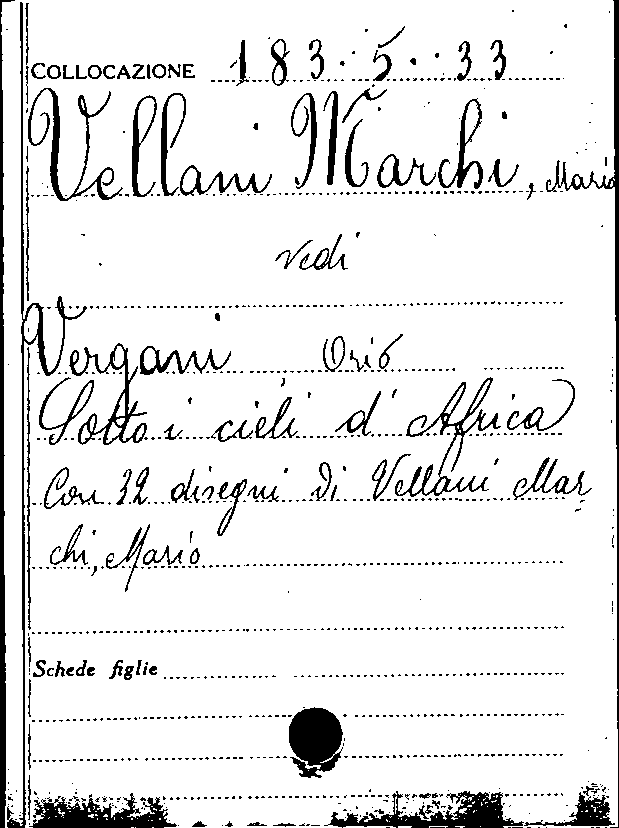 COLLOCAZIONE 183.5..33
Vellani Marchi, Mario
vedi
Vergani Orio
Sotto i cieli d'Africa
Con 32 disegni di Vellani Mar
chi, Mario
Schede figlie